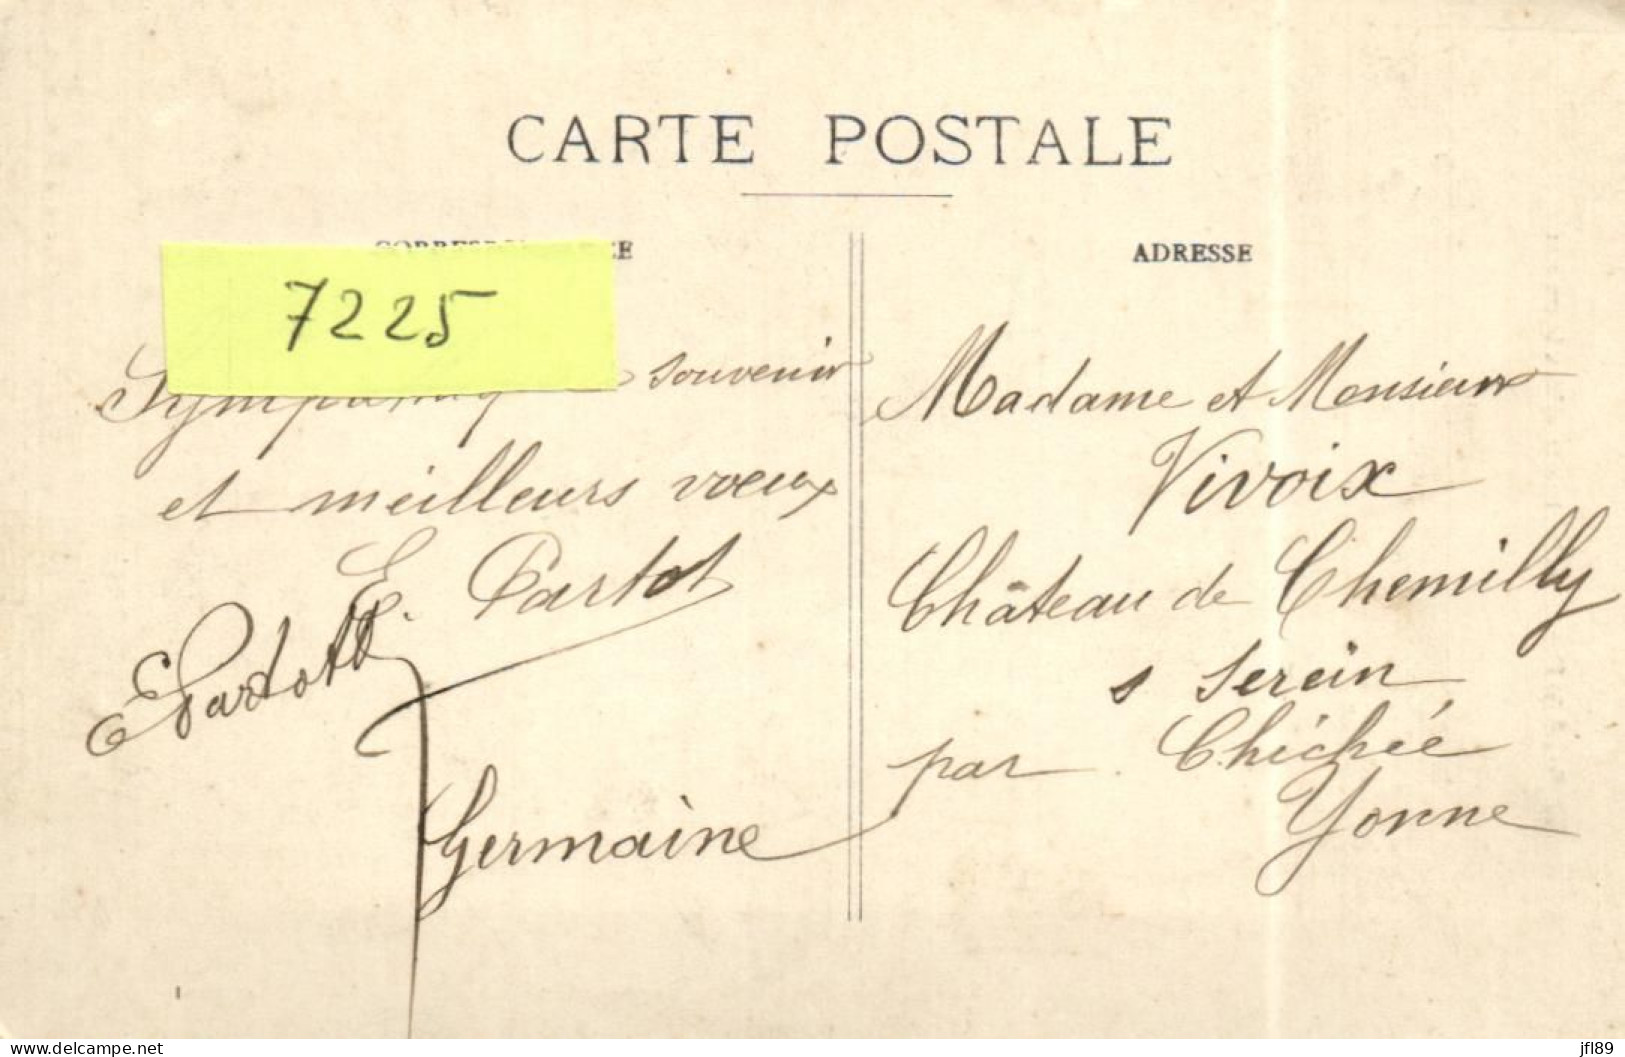 CARTE POSTALE
CORRESPONDANCE
7225
Sympathique souvenir
et meilleurs vœux
E. Partot
EPartott
Germaine
ADRESSE
Madame et Monsieur
Vivoix
Château de Chemilly
s Serein
par Chichée
Yonne
delcampe.net
jfl89